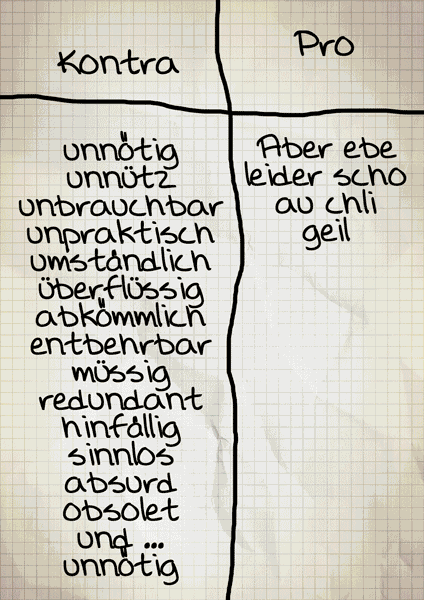 Kontra
unnötig
unnütz
unbrauchbar
unpraktisch
umständlich
überflüssig
abkömmlich
entbehrbar
müssig
redundant
hinfällig
sinnlos
absurd
obsolet
und ...
unnötig
Pro
Aber ebe
leider scho
au chli
geil